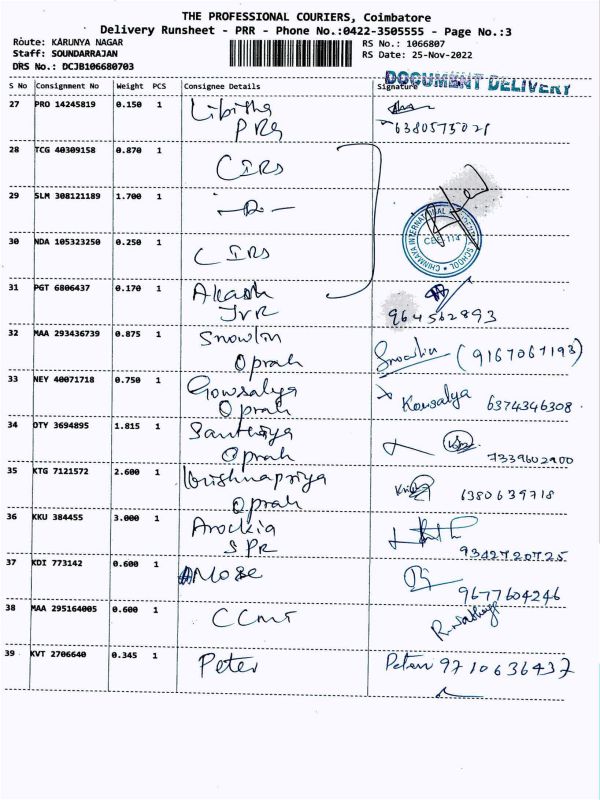 THE PROFESSIONAL COURIERS, Coimbatore
Delivery Runsheet - PRR - Phone No.:0422-3505555 - Page No.:3
Route: KARUNYA NAGAR
RS No.: 1066807
Staff: SOUNDARRAJAN
RS Date: 25-Nov-2022
DRS No.: DCJB106680703
DOCUMENT DELIVERY
S No Consignment No Weight PCS Consignee Details Signature
27 PRO 14245819 0.150 1 Libitha
PRG
6380575021
28 TCG 40309158 0.870 1 CIRS
29 SLM 308121189 1.700 1 -Do-
CHINMAYA INTERNATIONAL RESIDENTIAL SCHOOL
CBE 114
30 NDA 105323250 0.250 1 CIRS
31 PGT 6806437 0.170 1 Akash
JVR
964562893
32 MAA 293436739 0.875 1 Snowlin
Oprah
Snowlin (9167067193)
33 NEY 40071718 0.750 1 Gowsalya
Oprah
Kowsalya 6374346308
34 OTY 3694895 1.815 1 Santhiya
Oprah
7339602900
35 KTG 7121572 2.600 1 Krishnapriya
Oprah
6380639718
36 KKU 384455 3.000 1 Arockia
SPR
9342720725
37 KDI 773142 0.600 1 Mose
9677604246
38 MAA 295164005 0.600 1 CCMT
39 KVT 2706640 0.345 1 Peter
Peter 9710636437